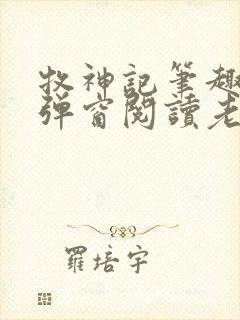 牧神記筆趣
彈窗閱讀老
羅培宇